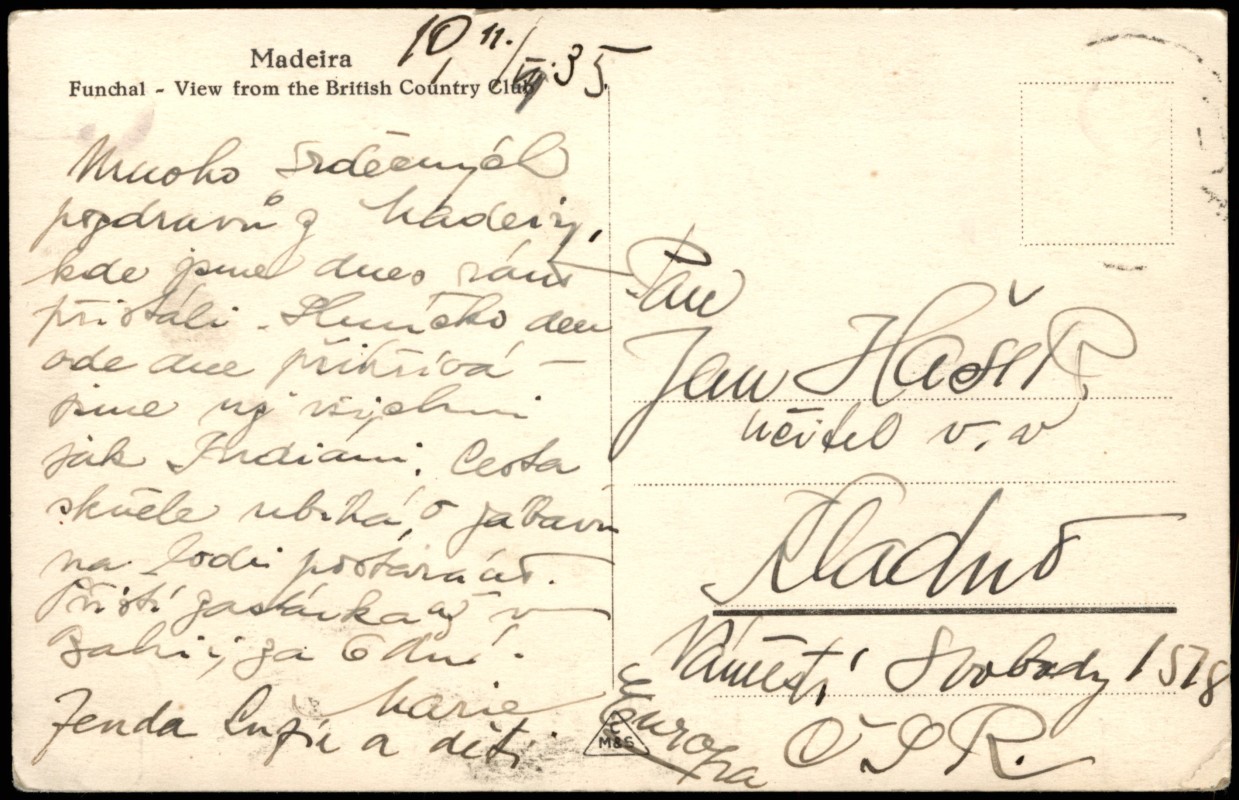 Madeira
Funchal - View from the British Country Club
10 11./VI 35
Mnoho srdečných
pozdravů z Madeiry,
kde jsme dnes ráno
přistáli. Sluníčko den
ode dne
jsme již všichni
jak Indiáni. Cesta
skvěle ubíhá, o zábavu
na lodi postaráno.
Příští zastávka až v
Bahii, za 6 dní.
Marie
Jenda a děti
Pan
Jan Hašek
učitel v. v
Kladno
Náměstí Svobody 1578
Č S R.
Europa
M&S